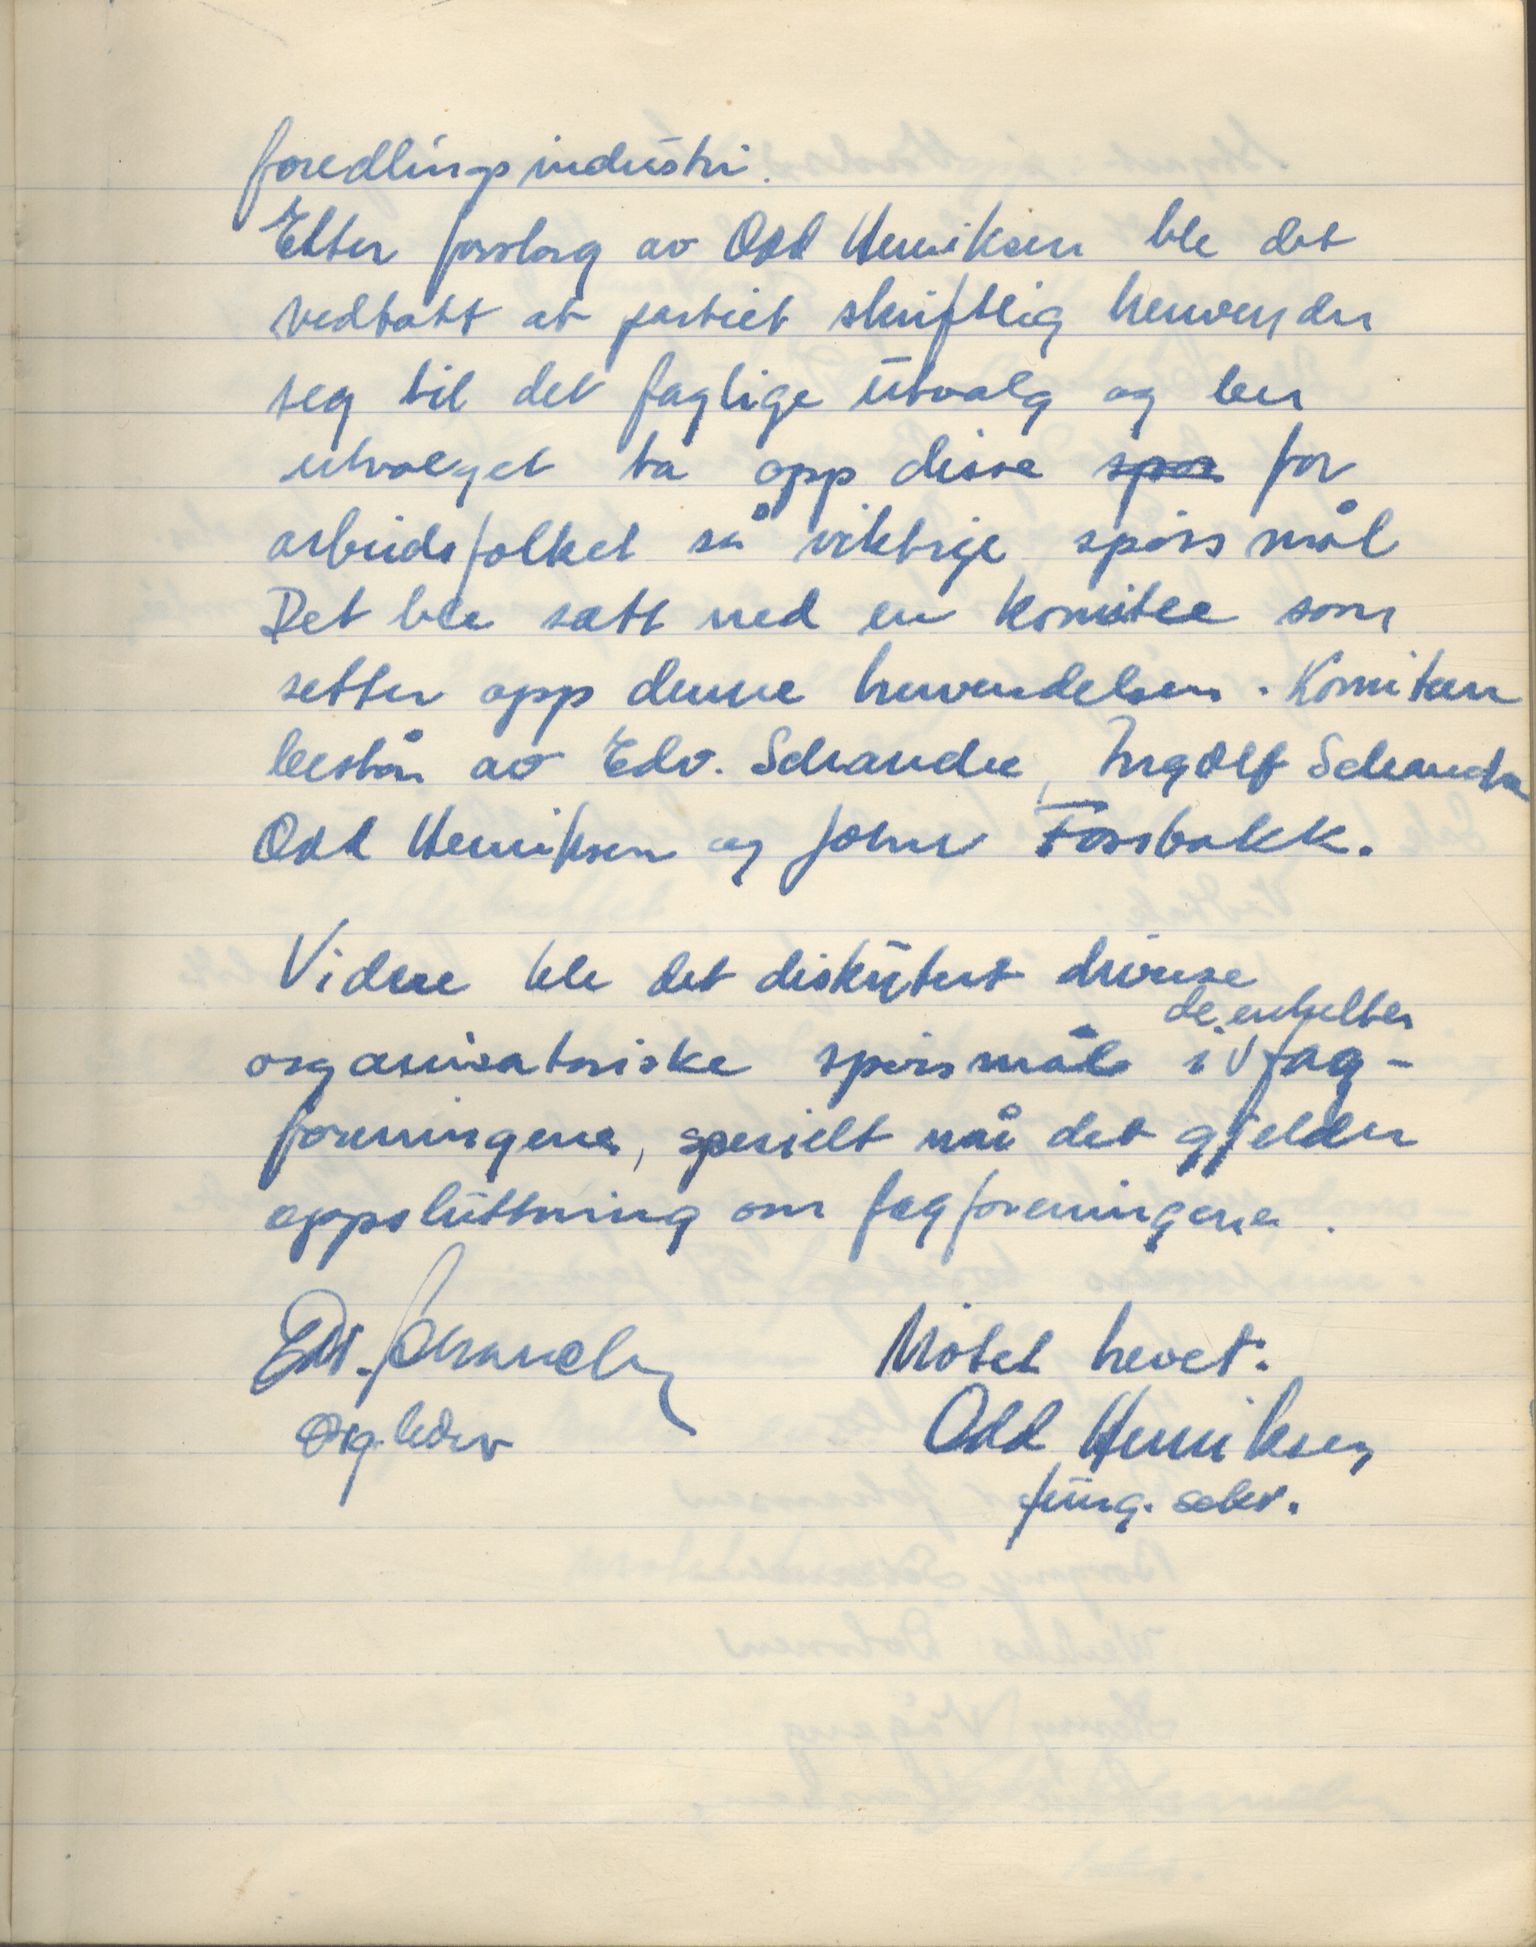 foredlingsindustri.
Etter forslag av Odd Henriksen ble det
vedtatt at partiet skriftlig henvender
seg til det faglige utvalg og ber
utvalget ta opp disse spør for
arbeidsfolket så viktige spørsmål
Det ble satt ned en komitee som
setter opp denne henvendelsen. Komiteen
består av Edv. Schandre, Ingolf
Odd Henriksen og John Fossbakk.
Videre ble det diskutert diverse
de enkelter
organisatoriske spørsmål i fag-
foreningene, spesielt når det gjelder
oppsluttning om fagforeningene.
Møtet hevet.
Org. leder
Odd Henriksen
fung. sekr.